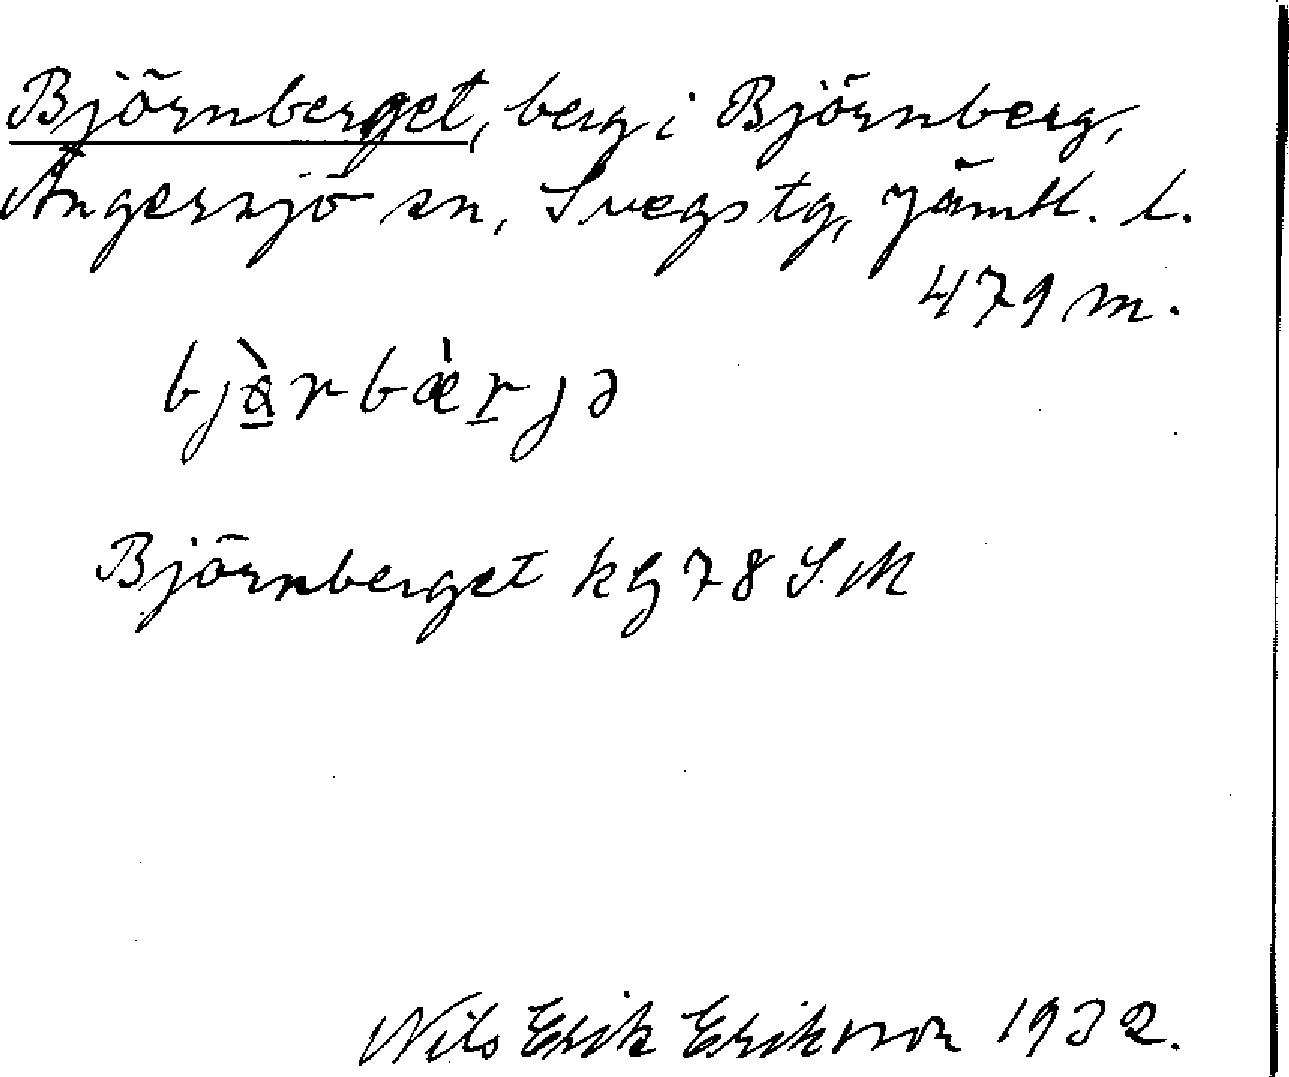 Björnberget, berg i Björnberg,
Ängersjö sn, Svegs tg, Jämtl. l.
479 m.
bjò̲rbæ̀r̲jə
Björnberget kg 78 S.M
Nils Erik Eriksson 1932.